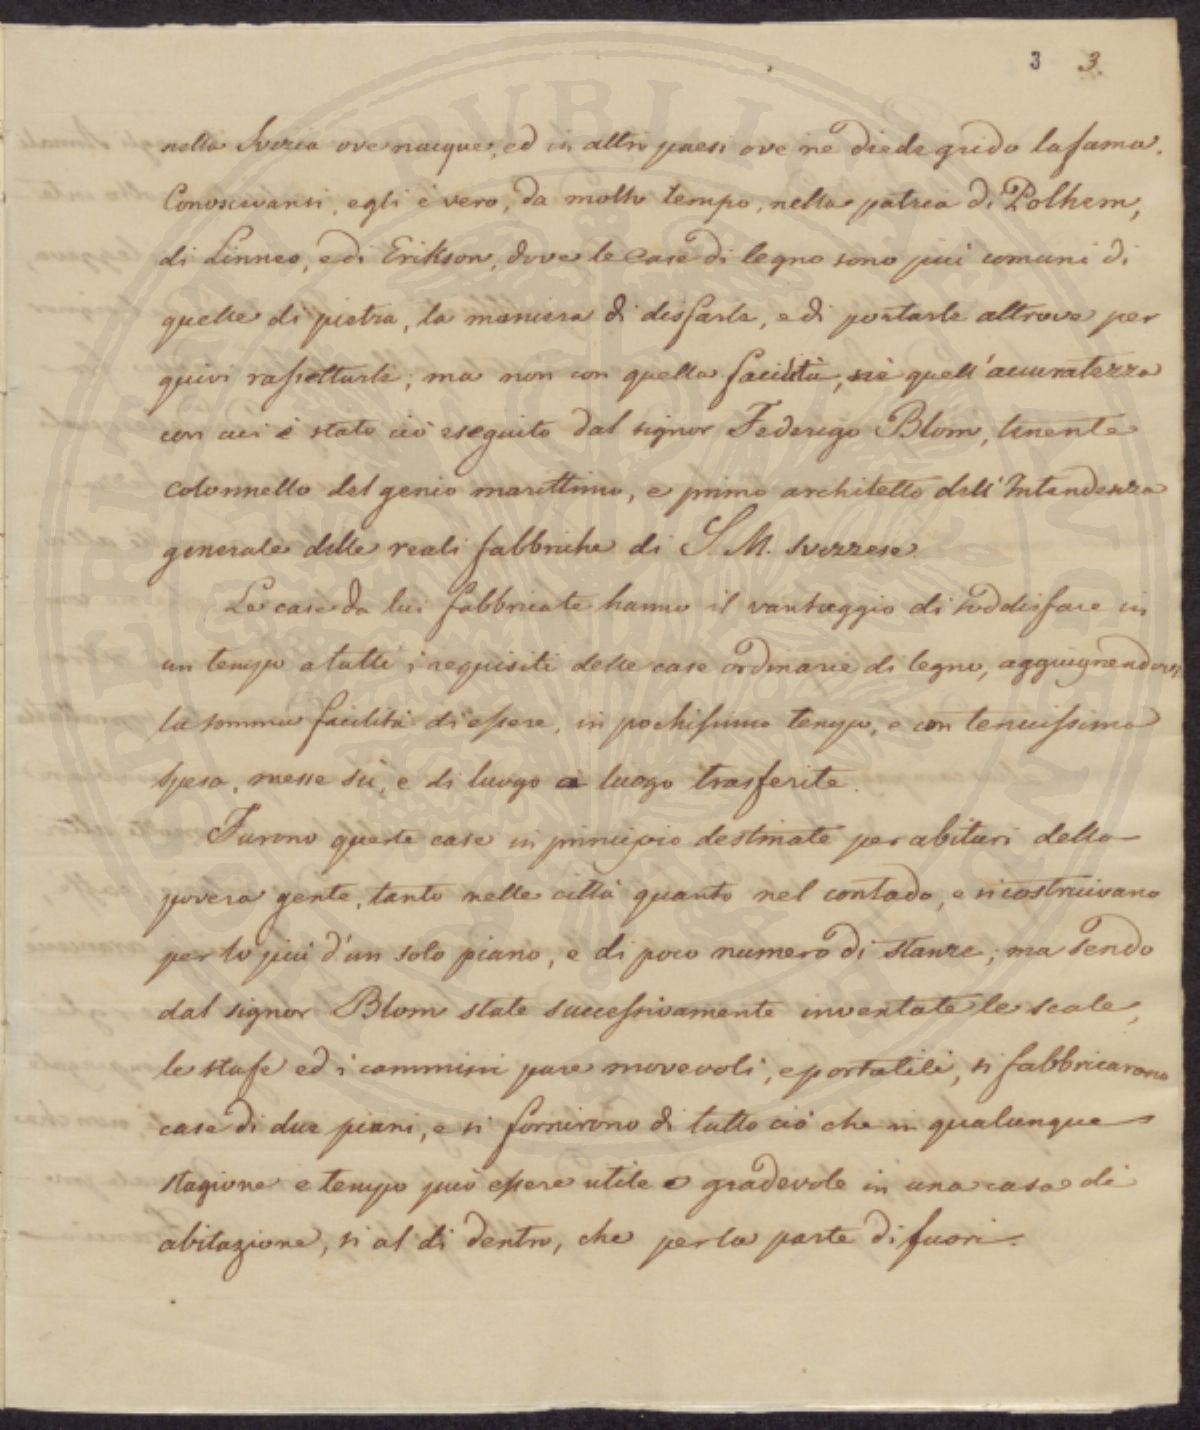 3 3.
nella Svezia ove nacque, ed in altri paesi ove ne diede grido la fama.
Conoscevansi, egli è vero, da molto tempo, nella patria di Polhem,
di Linneo, e di Erikson, dove le case di legno sono più comuni di
quelle di pietra, la maniera di disfarle, e di portarle altrove per
quivi rassettarle; ma non con quella facilità, nè quell'accuratezza
con cui è stato ciò eseguito dal signor Federigo Blom, tenente
colonnello del genio marittimo, e primo architetto dell'Intendenza
generale delle reali fabbriche di S. M. svezzese.
Le case da lui fabbricate hanno il vantaggio di soddisfare in
un tempo a tutti i requisiti delle case ordinarie di legno, aggiugnendovi
la somma facilità di essere, in pochissimo tempo, e con tenuissima
spesa, messe sù, e di luogo a luogo trasferite.
Furono queste case in principio destinate per abituri della
povera gente, tanto nelle città quanto nel contado, e si costruivano
per lo più d'un solo piano, e di poco numero di stanze; ma sendo
dal signor Blom state successivamente inventate le scale,
le stufe ed i cammini pure movevoli, e portatili, si fabbricarono
case di due piani, e si fornirono di tutto ciò che in qualunque
stagione e tempo può essere utile o gradevole in una casa di
abitazione, sì al di dentro, che per la parte di fuori.